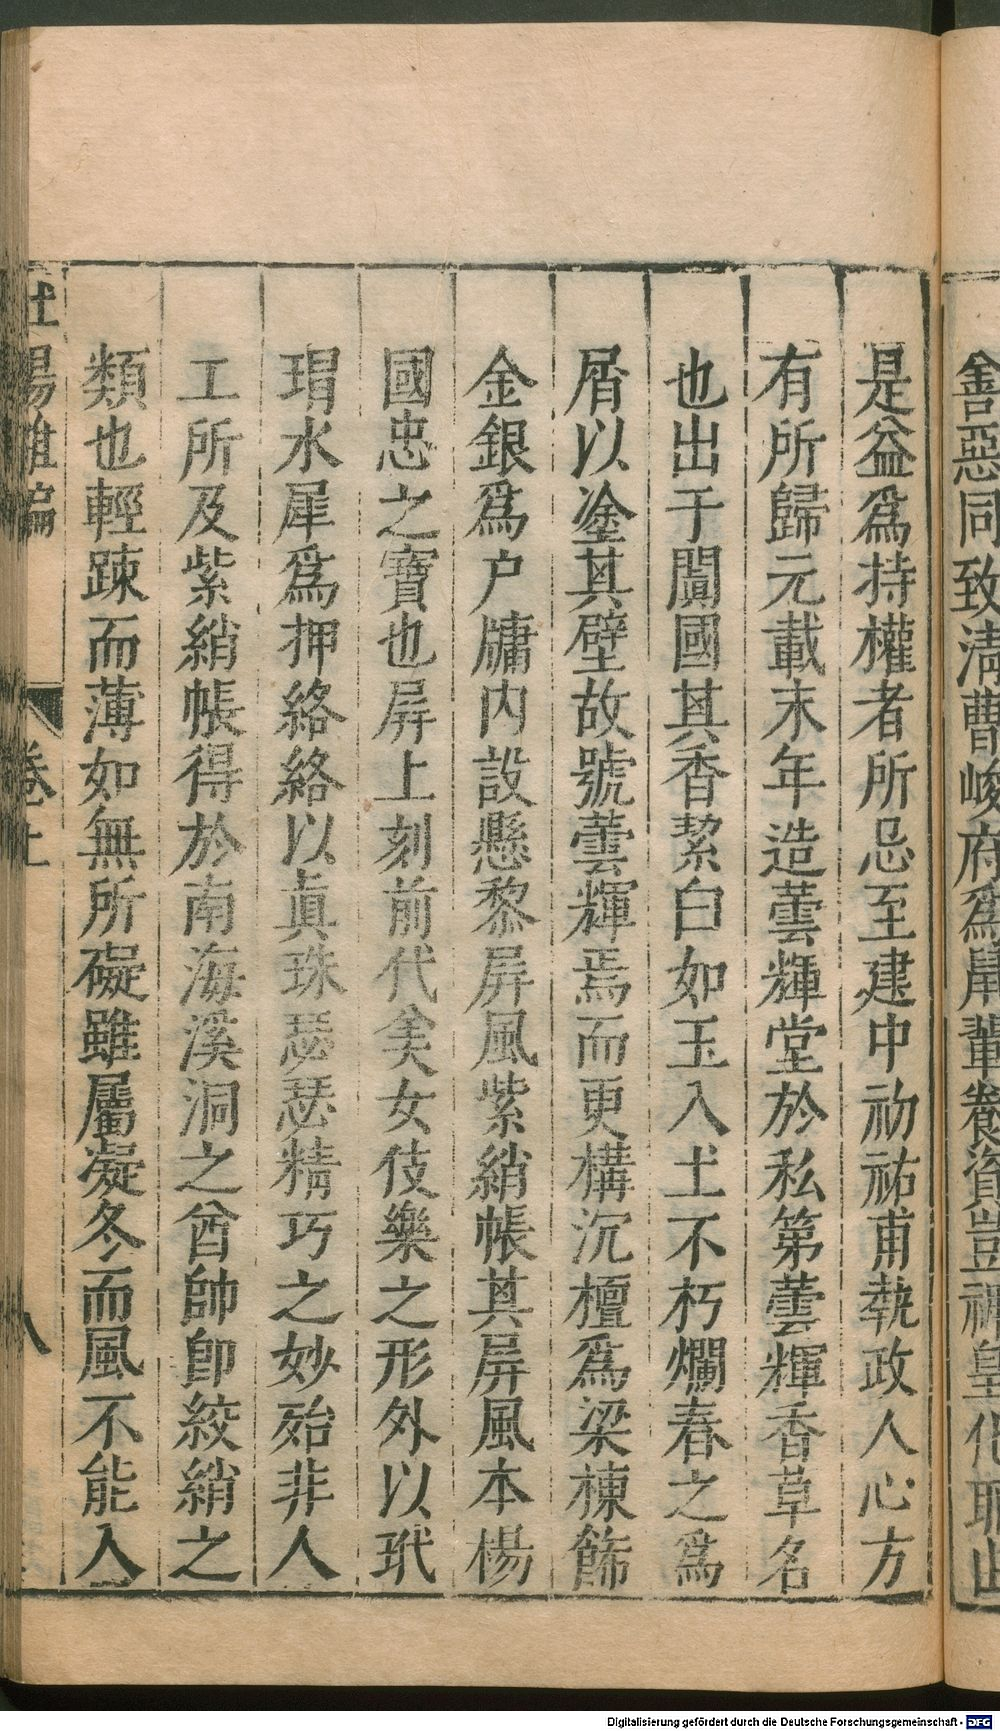 善惡同致清曹峻府爲鼠輩養資豈裨皇化耶由
是益爲持權者所忌至建中初祐甫執政人心方
有所歸元載末年造蕓輝堂於私第蕓輝香草名
也出于闐國其香絜白如玉入土不朽爛舂之爲
屑以塗其壁故號蕓輝焉而更構沉檀爲梁棟飾
金銀爲户牖内設懸黎屏風紫綃帳其屏風本楊
國忠之寶也屏上刻前代美女伎樂之形外以玳
瑁水犀爲押絡絡以真珠瑟瑟精巧之妙殆非人
工所及紫綃帳得於南海溪洞之酋帥卽絞綃之
類也輕踈而薄如無所礙雖屬凝冬而風不能入
杜陽雜編
卷上
八
Digitalisierung gefördert durch die Deutsche Forschungsgemeinschaft - DFG